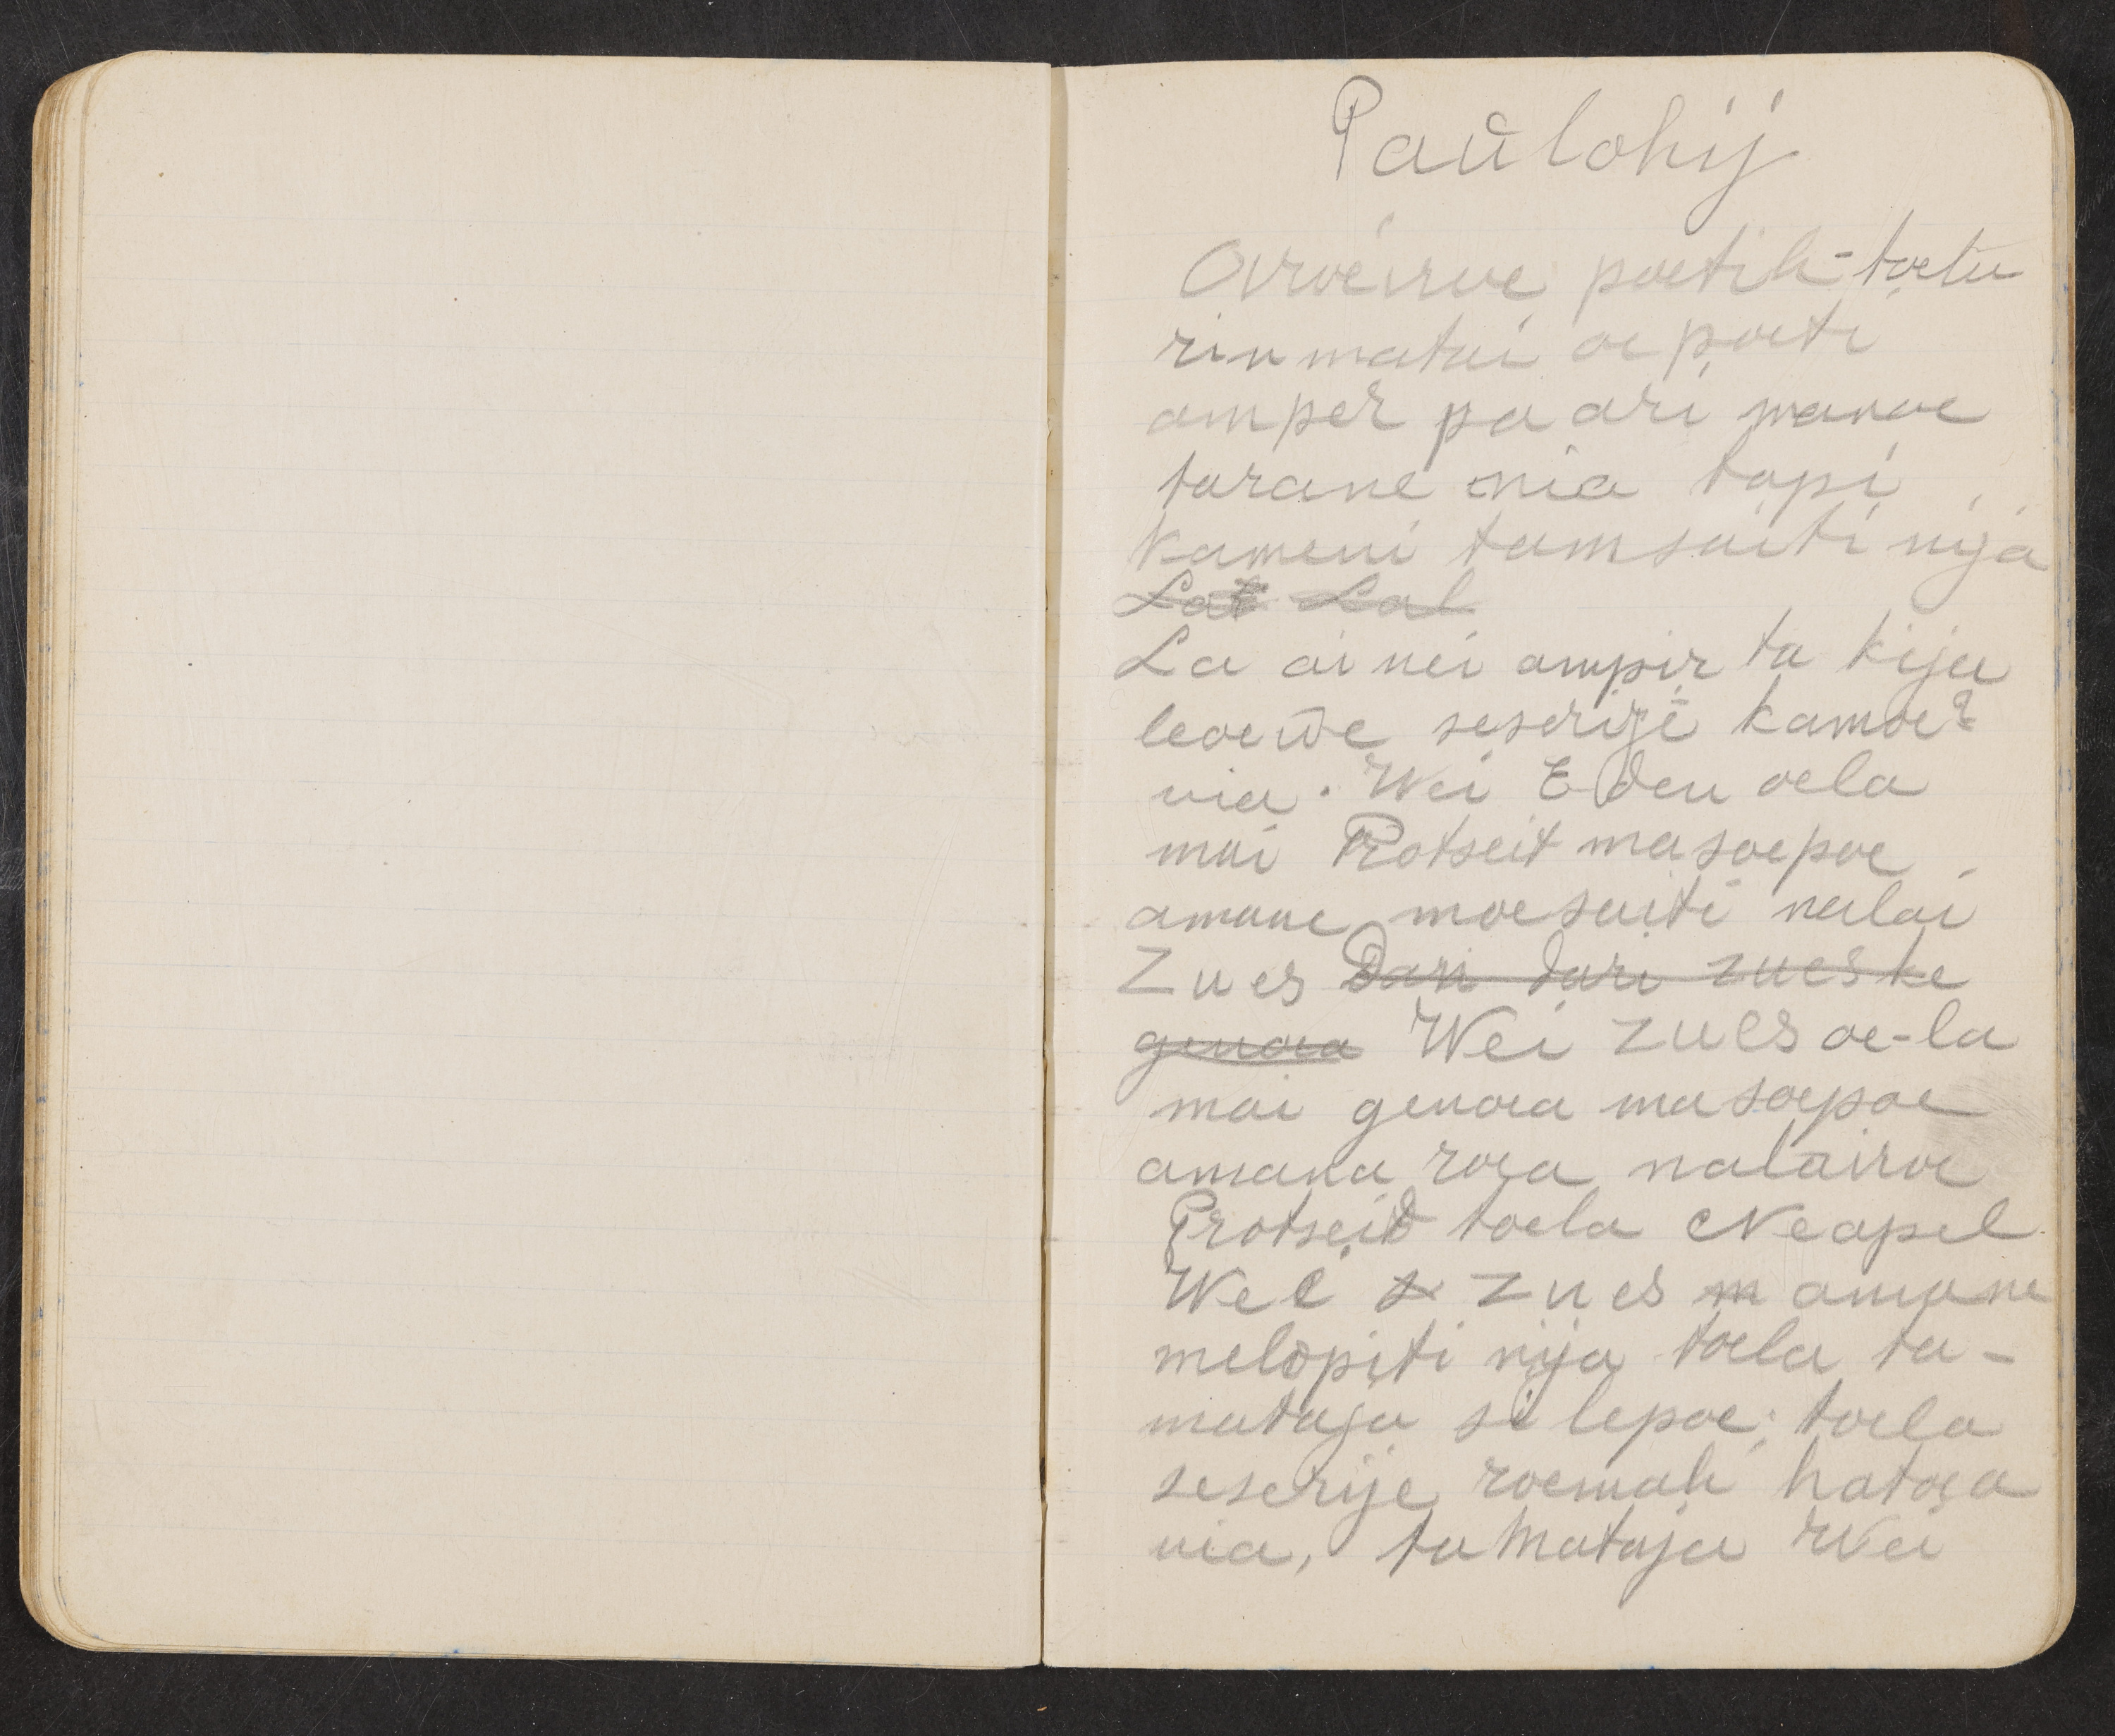 Paŭlohij
Oiroeiroe poetih-toetu
rin matai oe poeti
amper pa ari manoe
tarane nia tapi
kameni tamsaiti nija
Lat Lal
La ai nei ampir ta kija
leoewe seserijé kamoe?
nia. Wei Eden oela
mai Protseit masoepoe
amane moesaiti nalai
Zues Dari dari zues ke
genoea Wei zues oe-la
mai genoea masoepoe
amana roea nalairoe
Protseid toela Neapel
Wei s zues m amane
melopiti nija toela ta-
mataja si lepoe; toela
seserije roemah hatoea
nia, tamataja Wei